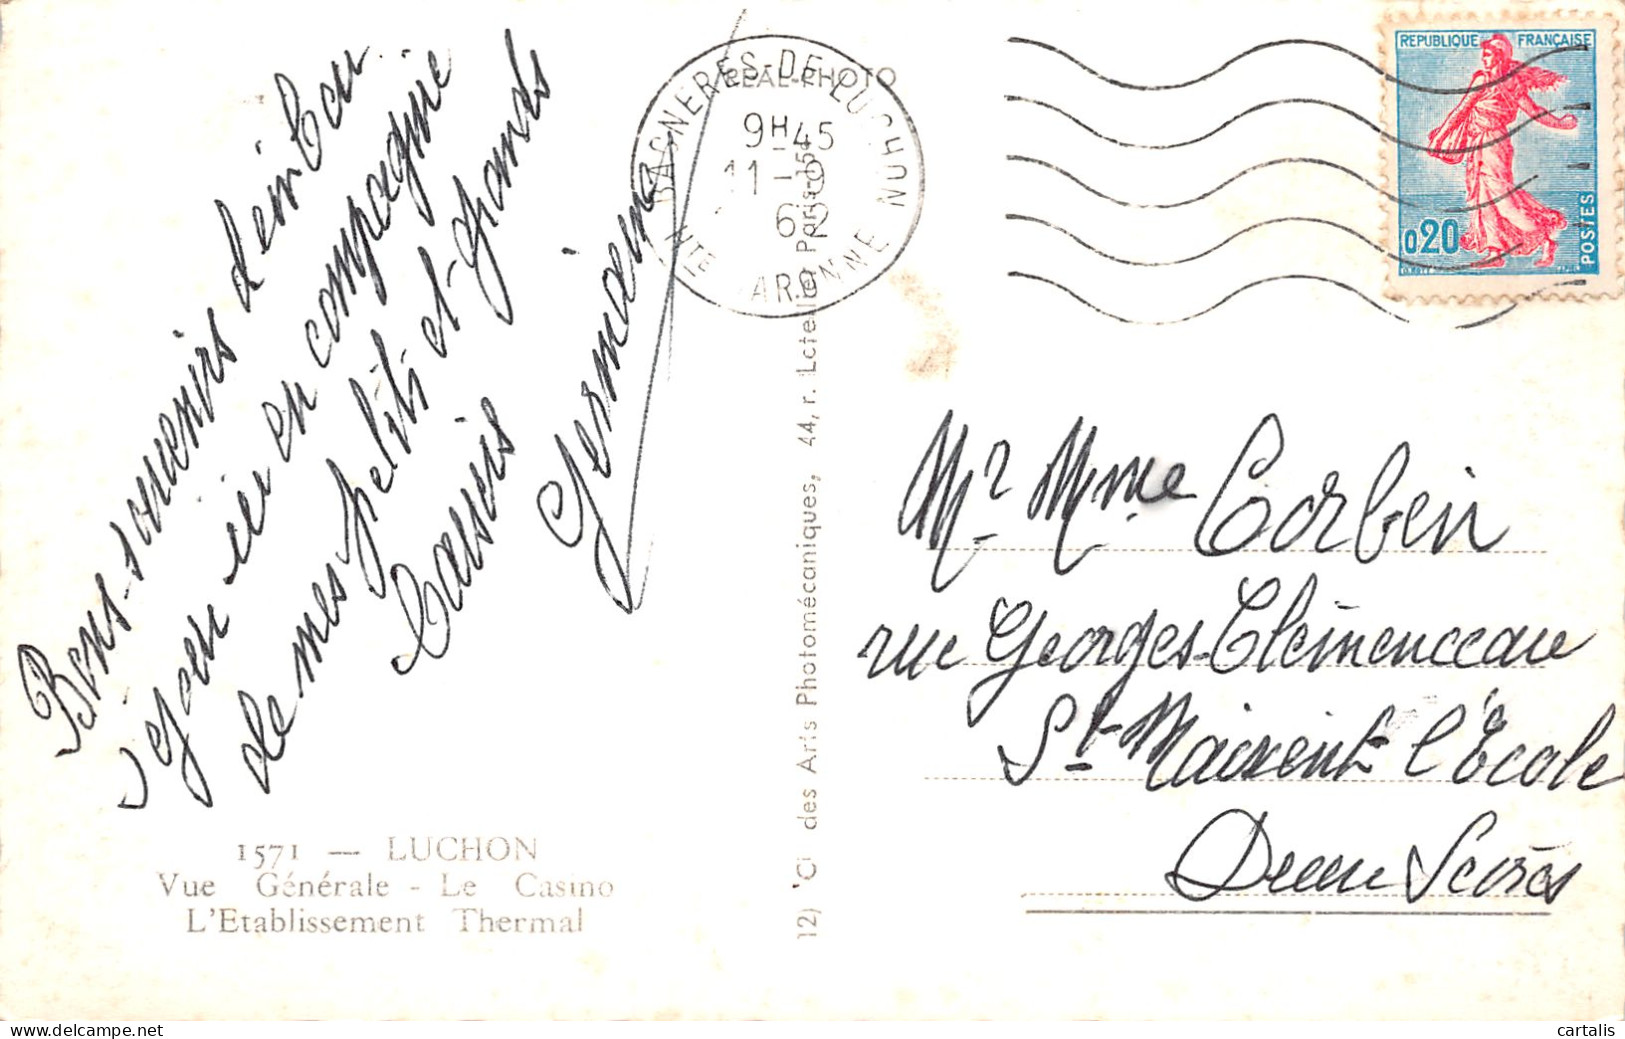 Bons souvenirs d'un bon
séjour ici en compagnie
de mes petits et grands
Cousins
Germaine
1571 — LUCHON
Vue Générale - Le Casino
L'Etablissement Thermal
REAL-PHOTO
BAGNERES-DE-LUCHON
9H45
11-9
62
HTE GARONNE
des Arts Photomécaniques, 44, r. Letellier Paris-15e
REPUBLIQUE FRANÇAISE
0,20
POSTES
Mr Mme Corbin
rue Georges-Clémenceau
St-Maixent l'Ecole
Deux Sèvres
cartalis